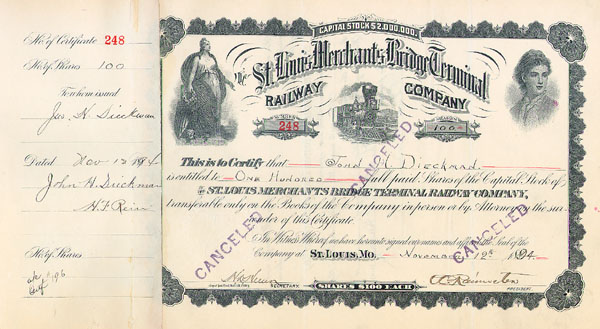 No. of Certificate 248
No. of Shares 100
To whom issued
Dated Nov 12 1894
John H. Dieckman
No. of Shares
CAPITAL STOCK $2,000,000.
The
St. Louis Merchants Bridge Terminal
RAILWAY COMPANY
NUMBER
248
SHARES
100
This is to Certify that John H Dieckman
is entitled to One Hundred full paid Shares of the Capital Stock of
The ST. LOUIS MERCHANTS BRIDGE TERMINAL RAILWAY COMPANY,
transferable only on the Books of the Company in person or by Attorney on the sur-
render of this Certificate.
In Witness Whereof we have hereunto signed our names and affixed the Seal of the
Company at ST. LOUIS, MO. November 12th 1894.
SECRETARY.
PRESIDENT.
SHARES $100 EACH
CANCELED
CANCELED
CANCELED